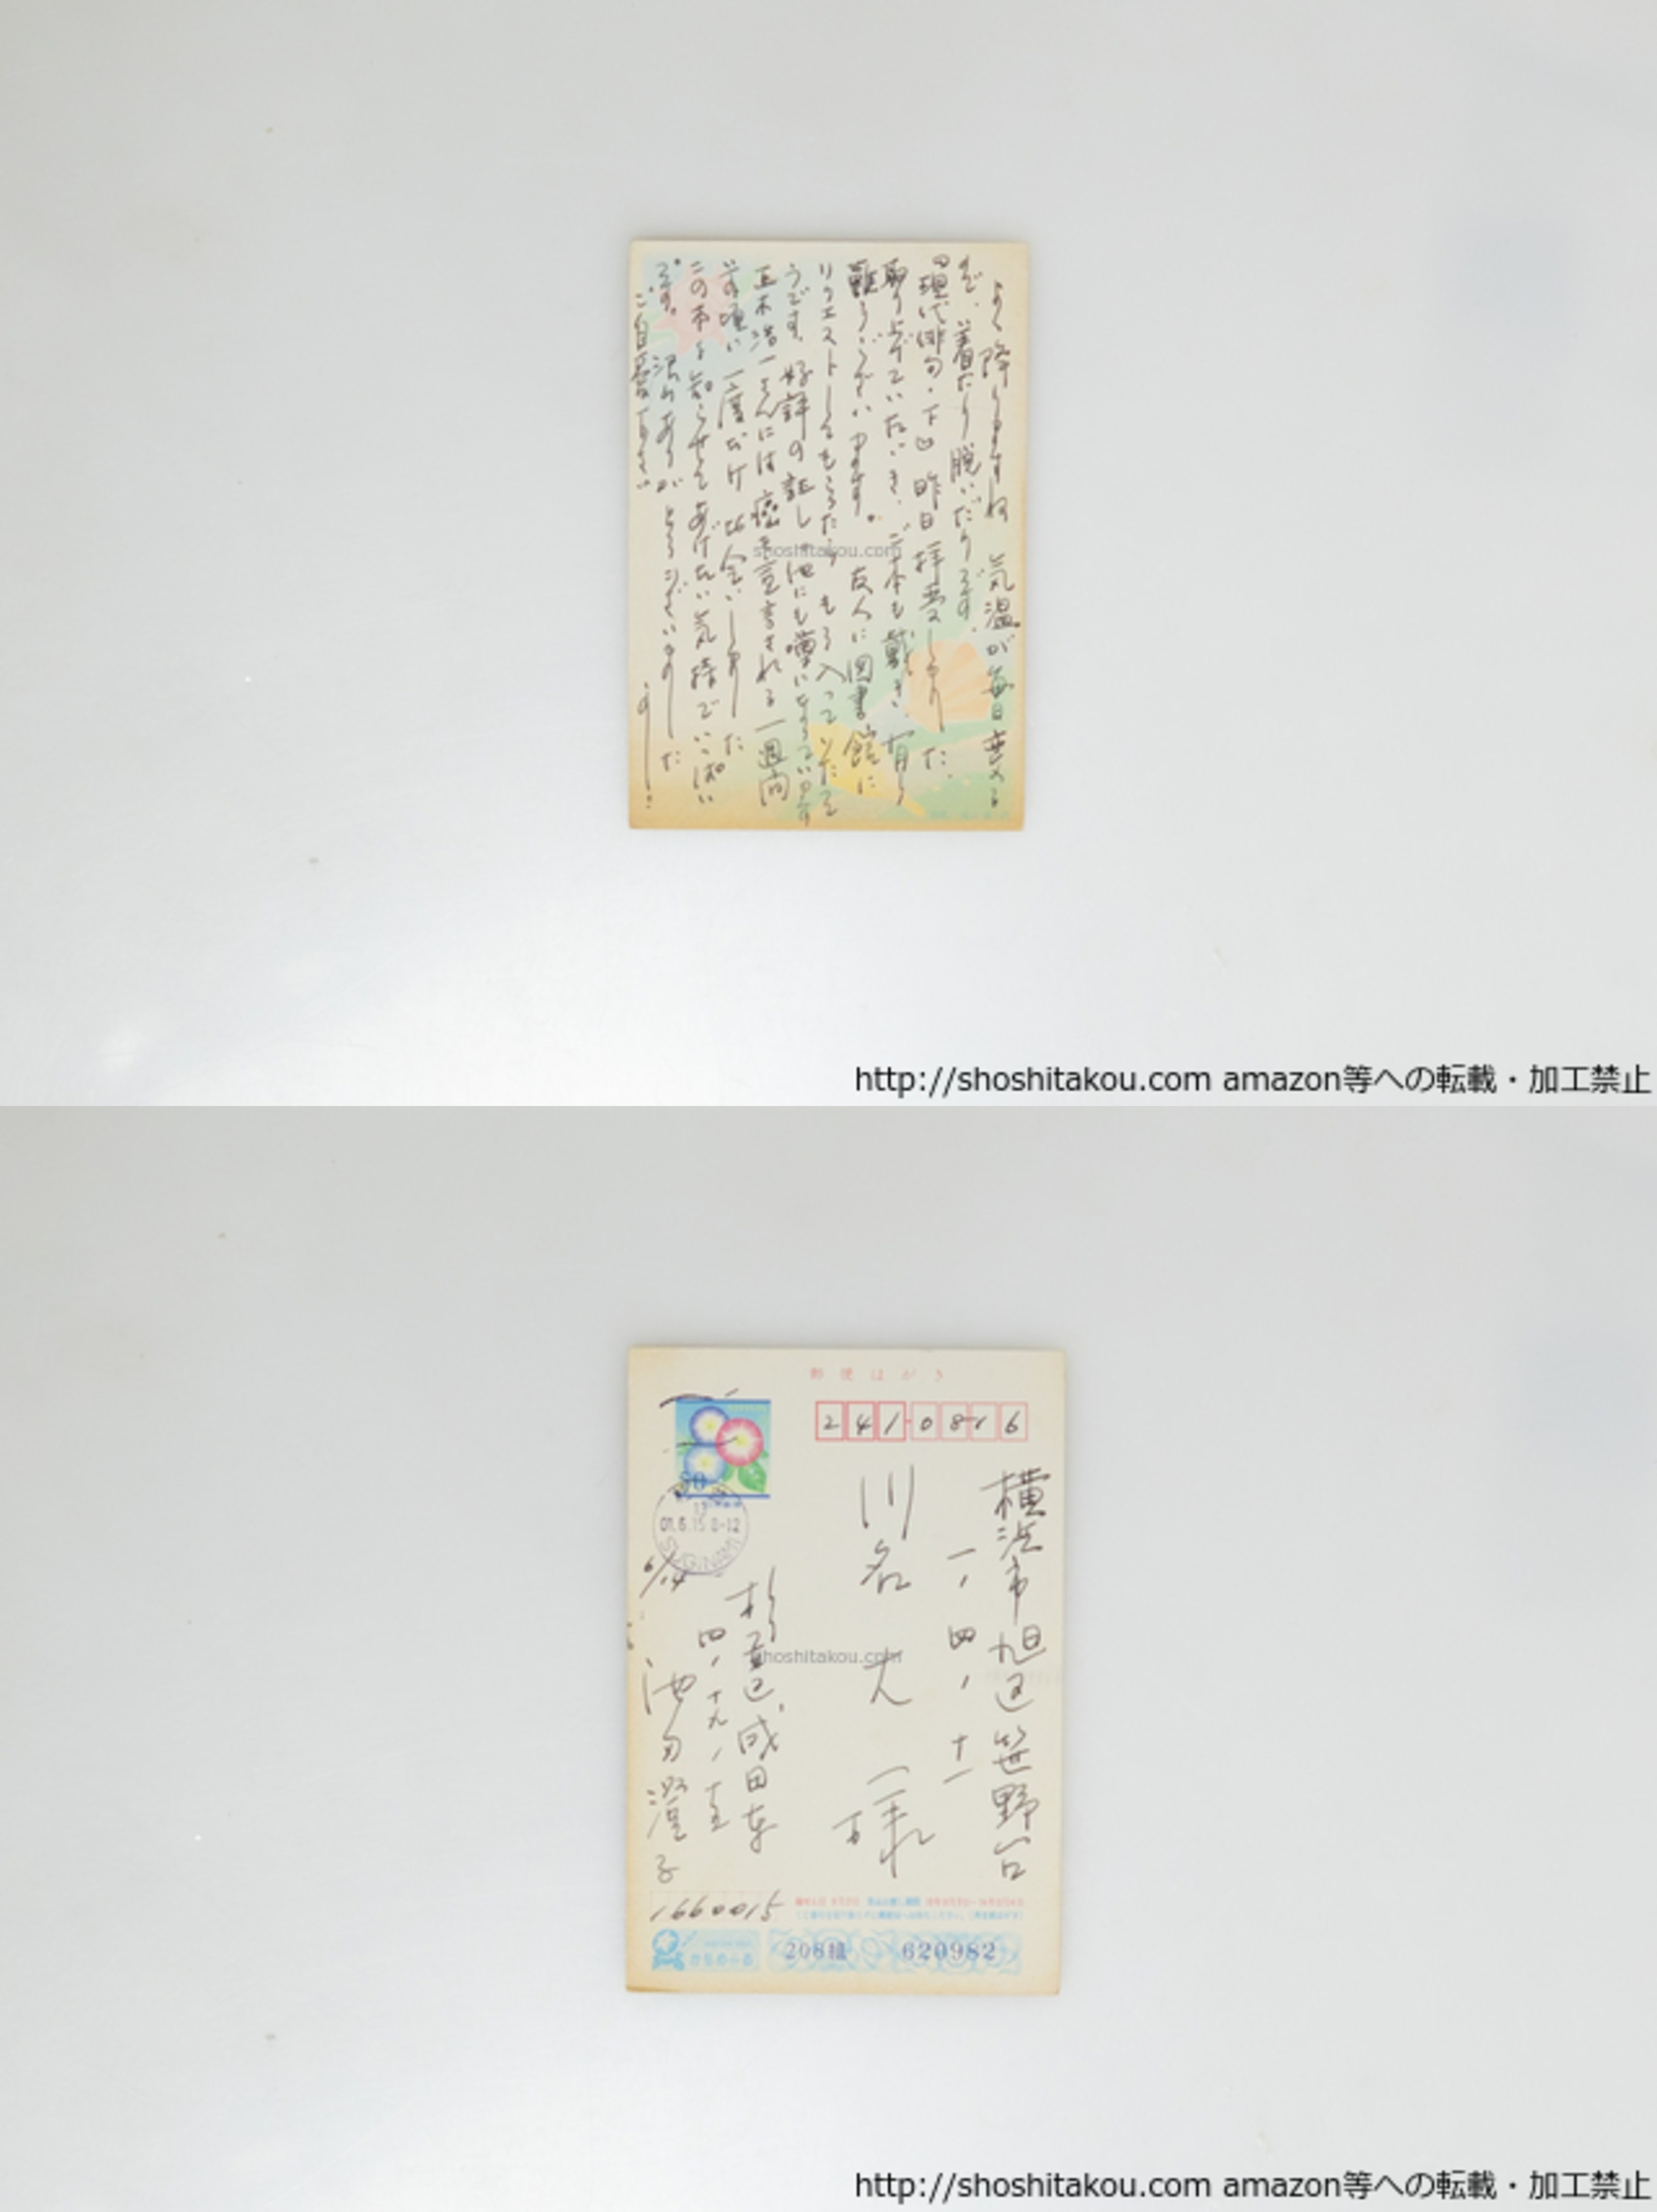 よく降りますね 気温が毎日変る
ので、着たり脱いだりです。
『現代俳句・下』昨日拝受しました。
取り上げていただき、ご本も戴き、有り
難うございます。友人に図書館に
リクエストしてもらったら もう入っていたそ
うです。好評の証し 他にも噂になっています
正木浩一さんには癌を宣言される一週間
前の頃に一度だけ お会いしました
この本を知らせてあげたい気持でいっぱい
です。 沢山ありがとうございました
ご自愛下さい
shoshitakou.com
http://shoshitakou.com amazon等への転載・加工禁止
郵便はがき
241-0816
横浜市旭区笹野台
一、四、十一
川名大様
01.6.15 8-12
SUGINAMI
6/14
杉並区成田東
四、十九、十五
池田澄子
1660015
さくらめーる
208組 620982
shoshitakou.com
http://shoshitakou.com amazon等への転載・加工禁止